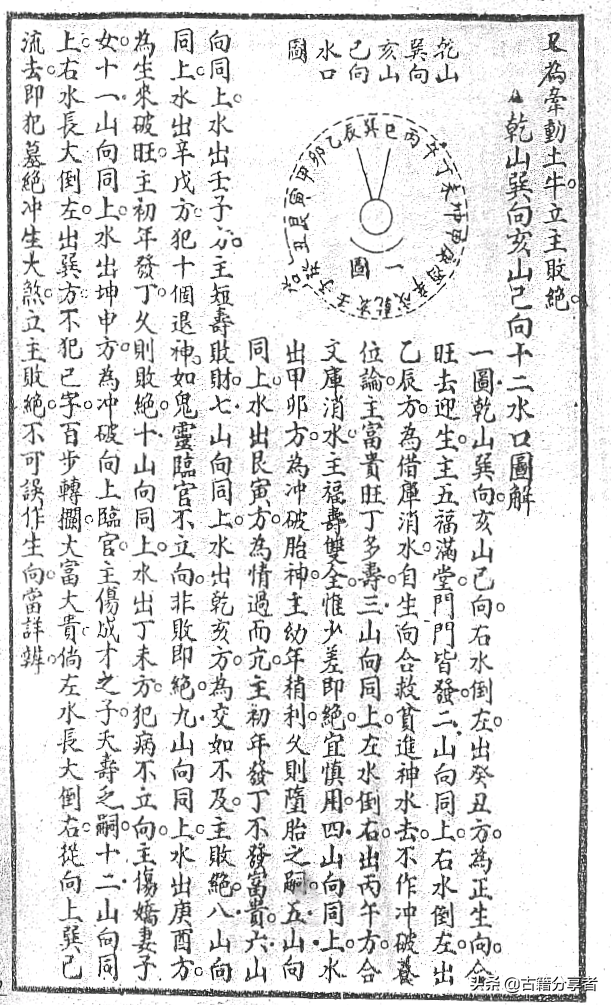 又為牽動土牛立主敗絕
乾山巽向亥山己向十二水口圖解
乾山
巽向
亥山
己向
水口
圖
巽巳丙午丁未坤申庚酉辛戌乾亥壬子癸丑艮寅甲卯乙辰
一圖
一圖乾山巽向亥山己向右水倒左出癸丑方為正生向合
旺去迎生主五福滿堂門門皆發二山向同上右水倒左出
乙辰方為借庫消水自生向合救貧進神水去不作冲破養
位論主富貴旺丁多壽三山向同上左水倒右出丙午方合
文庫消水主福壽雙全惟少差即絕宜慎用四山向同上水
出甲卯方為冲破胎神主幼年稍利久則墮胎乏嗣五山向
同上水出艮寅方為情過而亢主初年發丁不發富貴六山
向同上水出壬子方主短壽敗財七山向同上水出乾亥方為交如不及主敗絕八山向
同上水出辛戌方犯十個退神如鬼靈臨官不立向非敗即絕九山向同上水出庚酉方
為生來破旺主初年發丁久則敗絕十山向同上水出丁未方犯病不立向主傷嬌妻子
女十一山向同上水出坤申方為冲破向上臨官主傷成才之子夭壽乏嗣十二山向同
上右水長大倒左出巽方不犯己字百步轉攔大富大貴倘左水長大倒右從向上巽己
流去即犯墓絕冲生大煞立主敗絕不可誤作生向當詳辨
头条 @古籍分享者